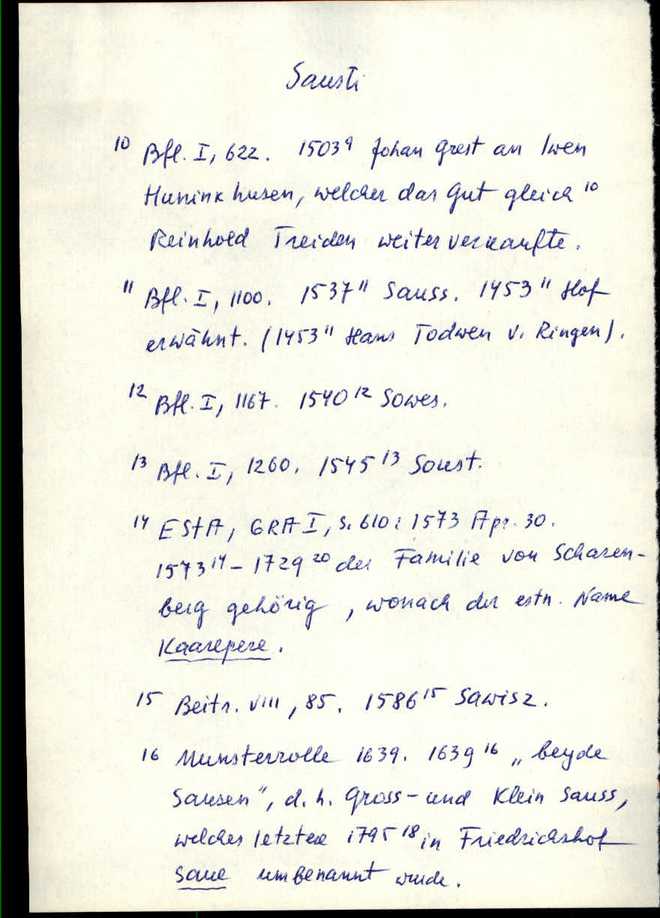 Sausti
10 Bfl. I, 622. 1503 9 Johan Grest an Iwen
Huninkhusen, welcher das Gut gleich 10
Reinhold Treiden weiter verkaufte.
11 Bfl. I, 1100. 1537 11 Sauss. 1453 11 Hof
erwähnt. (1453 11 Hans Todwen v. Ringen).
12 Bfl. I, 1167. 1540 12 Sowes.
13 Bfl. I, 1260. 1545 13 Soust.
14 EStA, GRA I, S. 610: 1573 Apr. 30.
1573 14 - 1729 20 der Familie von Scharen-
berg gehörig, wonach der estn. Name
Kaarepere.
15 Beitr. VIII, 85. 1586 15 Sawisz.
16 Munsterrolle 1639. 1639 16 „beyde
Sausen", d. h. Gross- und Klein Sauss,
welches letztere 1795 18 in Friedrichshof
Saue umbenannt wurde.